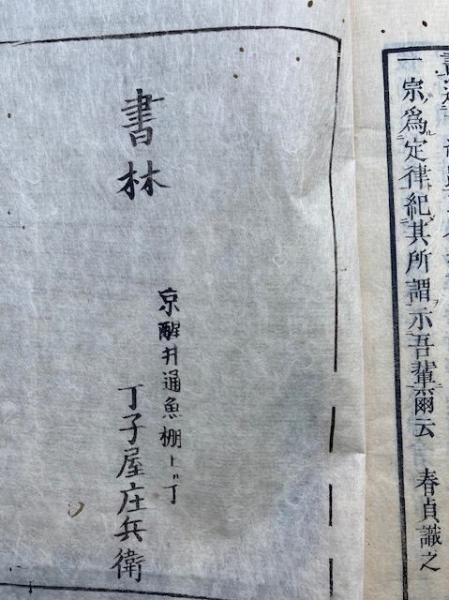 一宗爲定律紀其所謂示吾輩爾云 春貞識之
書林
京醒井通魚棚上ﾞ丁
丁子屋庄兵衛